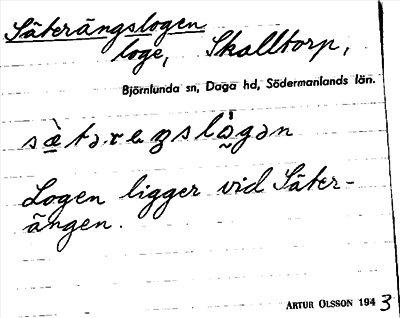 Säterängslogen
loge, Skalltorp,
Björnlunda sn, Daga hd, Södermanlands län.
Logen ligger vid Säter-
ängen.
ARTUR OLSSON 1943